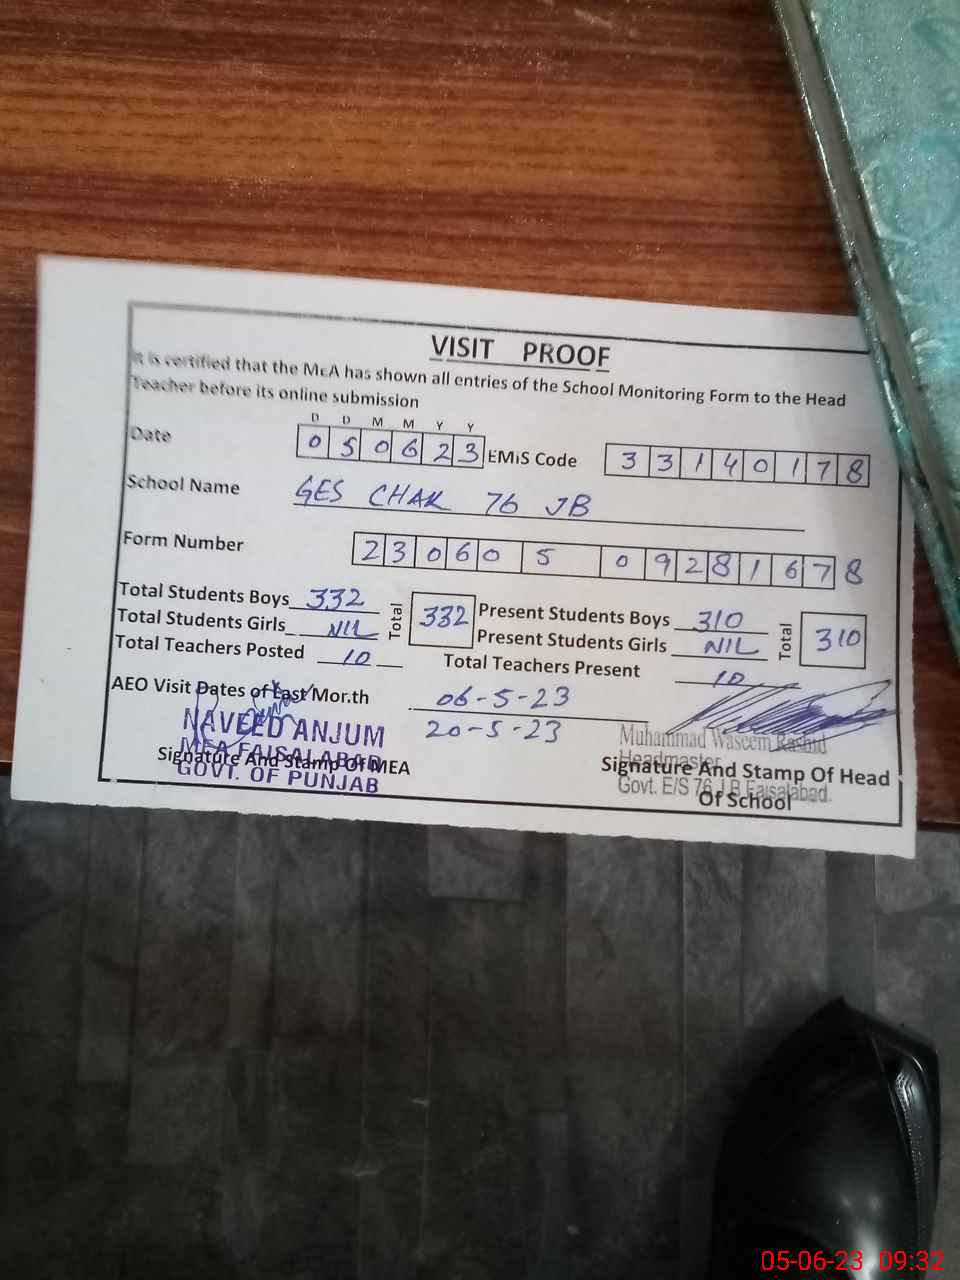 VISIT PROOF
It is certified that the MEA has shown all entries of the School Monitoring Form to the Head
Teacher before its online submission
D D M M Y Y
Date 0 5 0 6 2 3 EMIS Code 3 3 1 4 0 1 7 8
School Name GES CHAK 76 JB
Form Number 2 3 0 6 0 5 0 9 2 8 1 6 7 8
Total Students Boys 332 Total 332 Present Students Boys 310 Total 310
Total Students Girls NIL Present Students Girls NIL
Total Teachers Posted 10 Total Teachers Present 10
AEO Visit Dates of Last Mor.th 06-5-23
20-5-23
NAVEED ANJUM
MEA FAISALABAD
GOVT. OF PUNJAB
Signature And Stamp Of MEA
Muhammad Waseem Rashid
Headmaster
Govt. E/S 76 J.B Faisalabad.
Signature And Stamp Of Head
Of School
05-06-23 09:32